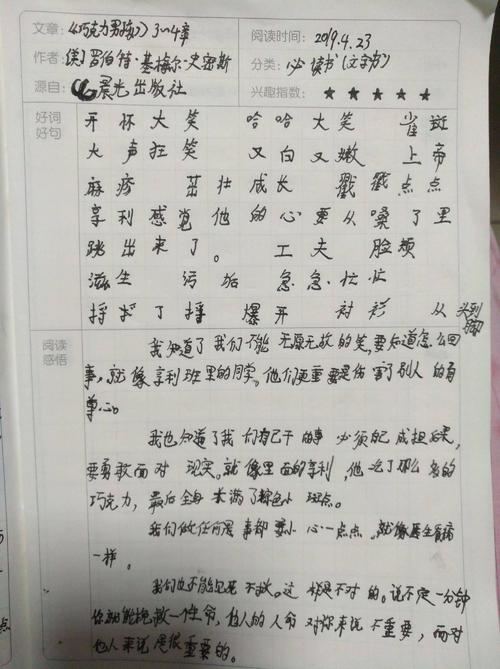 文章:《巧克力男孩》3~4章 阅读时间:2019.4.23
作者:(美)罗伯特·基梅尔·史密斯 分类:必读书(文学书)
源自:晨光出版社 兴趣指数:★ ★ ★ ★ ★
好词好句
开怀大笑 哈哈大笑 雀斑
大声狂笑 又白又嫩 上帝
麻疹 茁壮成长 戳戳点点
亨利感觉他的心要从嗓了里
跳出来了。 工夫 脸颊
滋生 污垢 急急忙忙
捋了捋 爆开 衬衫 从头到脚
阅读感悟
我知道了我们不能无原无故的笑,要知道怎么回
事,就像亨利班里的同学。他们更重要是伤害了别人的自
尊心。
我也知道了我们自己干的事必须自己成担后果,
要勇敢面对现实。就像里面的亨利,他吃了那么多的
巧克力,最后全身长满了棕色小斑点。
我们做任何事都要小心一点点,就像医生看病
一样。
我们也不能见死不救。这样是不对的。说不定一分钟
你就能挽救一个生命,他人的人命对你来说不重要,而对
他人来说是很重要的。